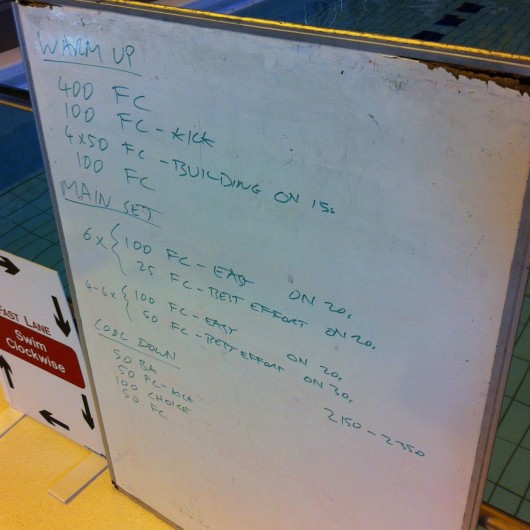 WARM UP
400 FC
100 FC - KICK
4x50 FC - BUILDING ON 15s
100 FC
MAIN SET
6x { 100 FC - EASY ON 20s
25 FC - BEST EFFORT ON 20s
4-6x { 100 FC - EASY ON 20s
50 FC - BEST EFFORT ON 30s
COOL DOWN
50 BK
50 FC - KICK
100 CHOICE
50 FC
2150 - 2350
FAST LANE
Swim
Clockwise